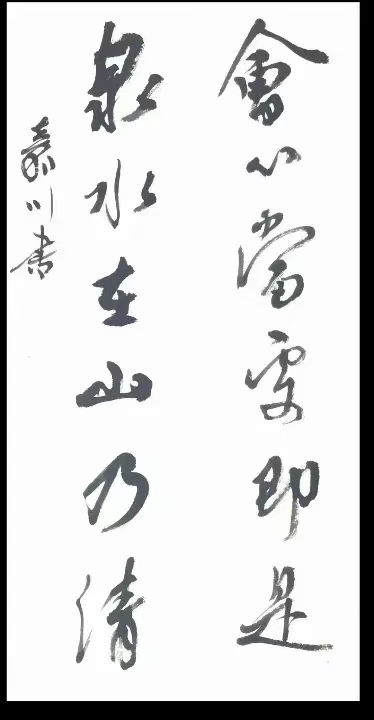 會心當處即是
泉水在山乃清
川書